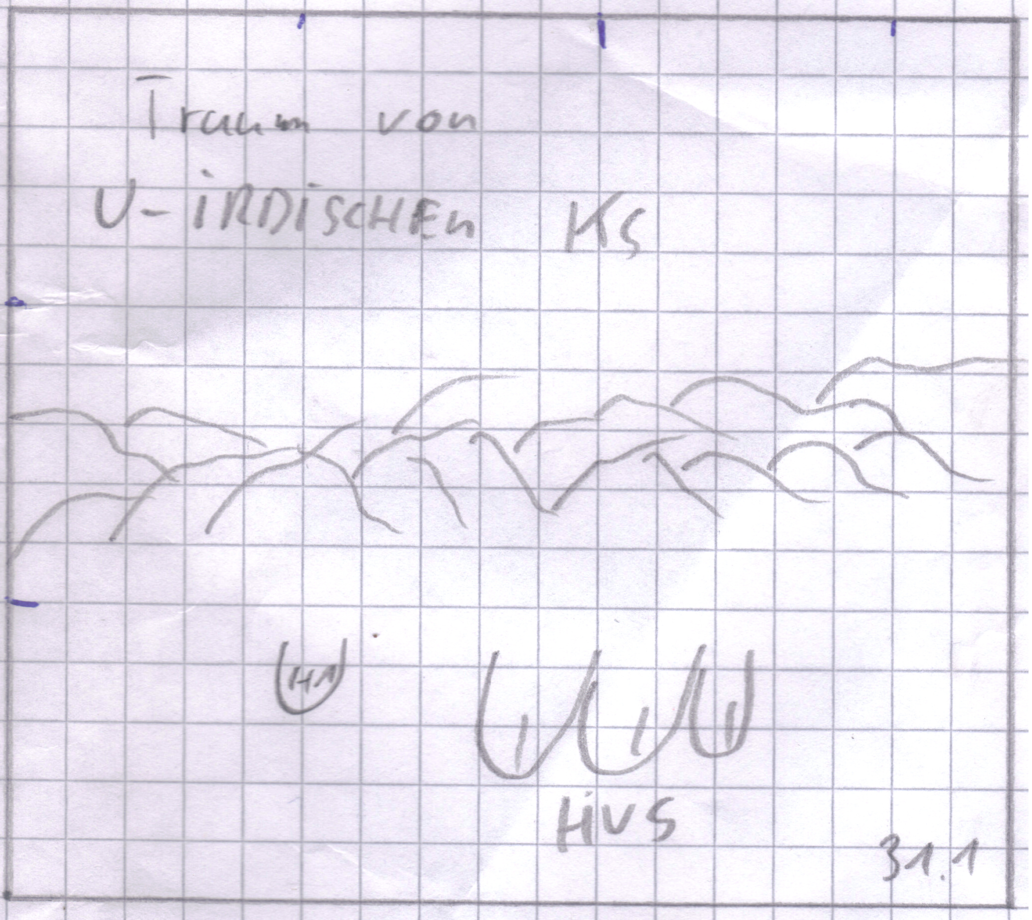 Traum von
U-iRDiSCHEn KS
H1
HiVS
31.1